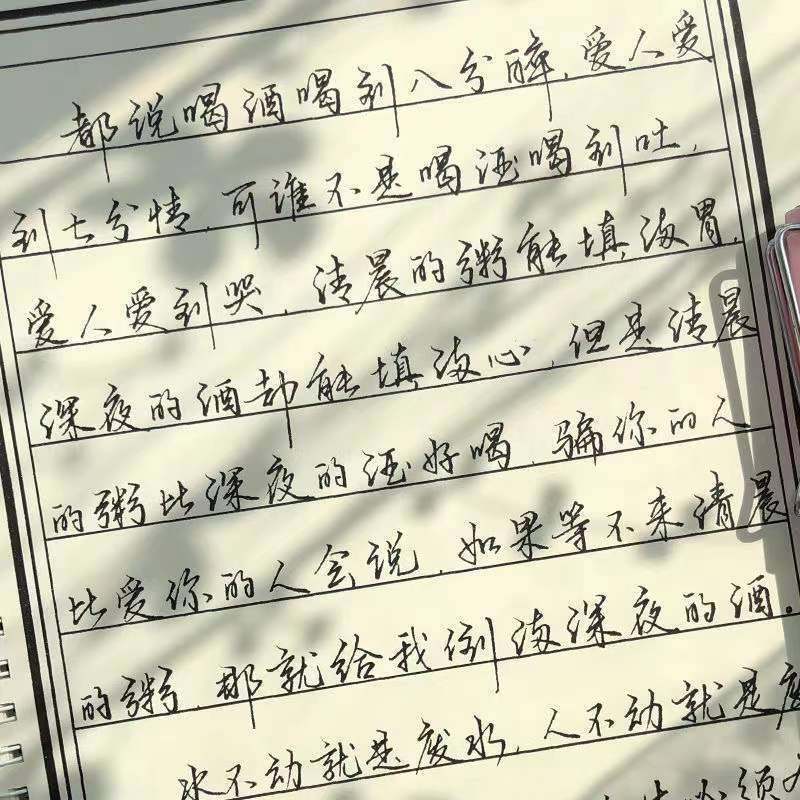 都说喝酒喝到八分醉，爱人爱
到七分情，可谁不是喝酒喝到吐，
爱人爱到哭，清晨的粥能填满胃，
深夜的酒却能填满心，但是清晨
的粥比深夜的酒好喝，骗你的人
比爱你的人会说，如果等不来清晨
的粥，那就给我倒满深夜的酒。
水不动就是废水，人不动就是废
必须